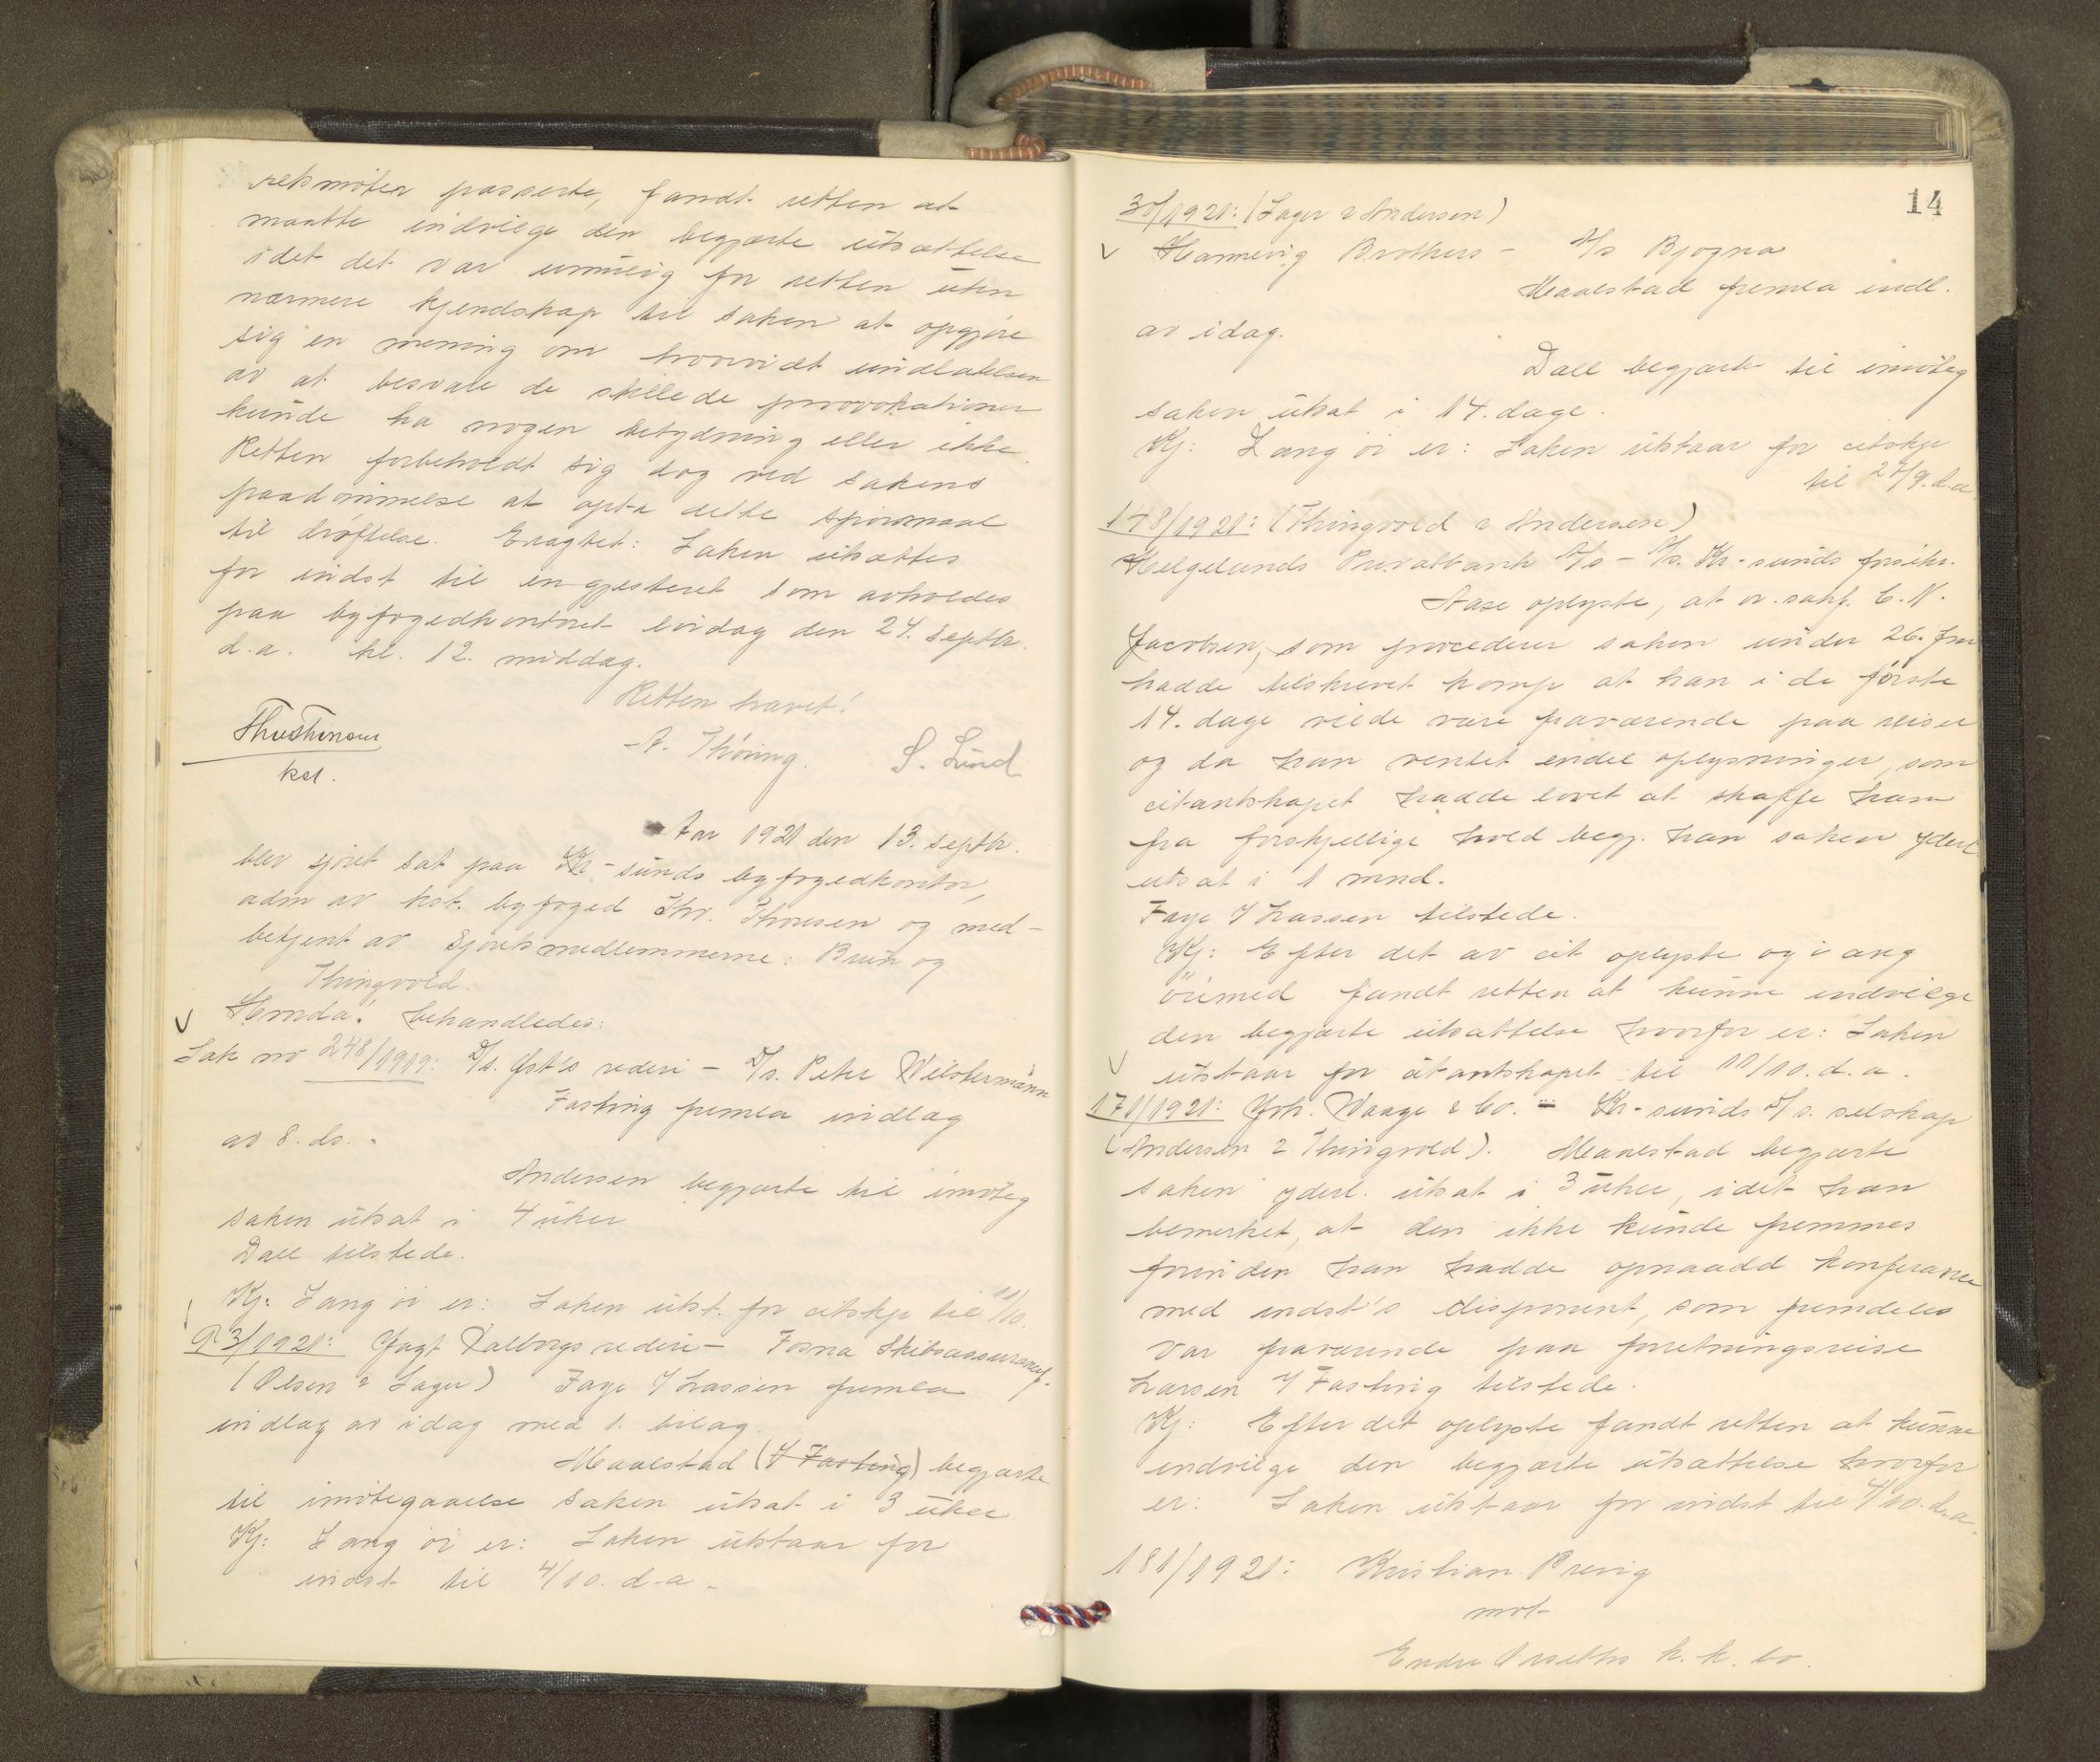 retsmøter passerte, fandt retten at
maatte indvilge den begjærte utsættelse
idet det var umulig for retten uten
nærmere kjendskap til saken at opgjøre
sig en mening om hvorvidt undlatelsen
av at besvare de stillede provokationer
kunde ha nogen betydning eller ikke.
Retten forbeholdt sig dog ved sakens
paadømmelse at opta dette spørsmaal
til drøftelse. Eragtet: Saken utsættes
for indst til en gjesteret som avholdes
paa byfogedkontoret lørdag den 24. septbr.
d.a. kl. 12. middag.
Retten hævet!
A. Thøring. S. Lund
kst.
Aar 1921 den 13. septbr.
blev sjøret sat paa Kr-sunds byfogedkontor,
adm av kst. byfoged Thv. Thoresen og med-
betjent av Sjøretsmedlemmerne: Brun og
Thingvold.
Hvorda! behandledes:
Sak no 248/1919: D/s. Yst's rederi - D/s. Peter Wilstermann
Fasting fremla indlæg
av 8. ds.
Andersen begjærte til imøteg
saken utsat i 4 uker
Dall tilstede.
Kj: I ang øi er: Saken utst. for citskp til 11/10.
93/1921: Jagt Valborgs rederi - Fosna Skibsassurancef.
(Olsen & Lager) Faye f Lassen fremla
indlæg av idag med 1. bilag.
Maalstad (f Fasting) begjærte
til imøtegaaelse saken utsat i 3 uker
Kj: I ang øi er: Saken utstaar for
indst til 4/10. d.a.
14
30/1921: (Lager & Andersen)
Hannevig Brothers - A/s Bjogna
Maalstad fremla indl.
av idag.
Dall begjærte til imøteg
saken utsat i 14. dage.
Kj: I ang øi er: Saken utstaar for citskp
til 27/9. d.a.
148/1921: (Thingvold & Andersen)
Helgelands Privatbank A/s - A/s. Kr-sunds forsikr.
Aase oplyste, at o.r.sakf. C.N.
Jacobsen, som procederer saken under 26. fm
hadde tilskrevet komp at han i de første
14. dage vilde være fraværende paa reiser
og da han ventet endel oplysninger, som
citantskapet hadde lovet at skaffe ham
fra forskjellige hold begj. han saken yderl
utsat i 1 mnd.
Faye f Lassen tilstede.
Kj: Efter det av cit oplyste og i ang
øiemed fandt retten at kunne indvilge
den begjærte utsættelse hvorfor er: Saken
utstaar for citantskapet til 11/10. d.a.
171/1921: Joh. Waage & Co. - Kr-sunds D/s. selskap
(Andersen & Thingvold). Maalstad begjærte
saken yderl. utsat i 3 uker, idet han
bemerket, at den ikke kunde fremmes
forinden han hadde opnaadd konferance
med indst's disponent, som fremdeles
var fraværende paa forretningsreise
Larsen f Fasting tilstede.
Kj: Efter det oplyste fandt retten at kunne
indvilge den begjærte utsættelse hvorfor
er: Saken utstaar for indst til 4/10. d.a.
181/1921: Kristian Prerig
mot
k. k. bo.